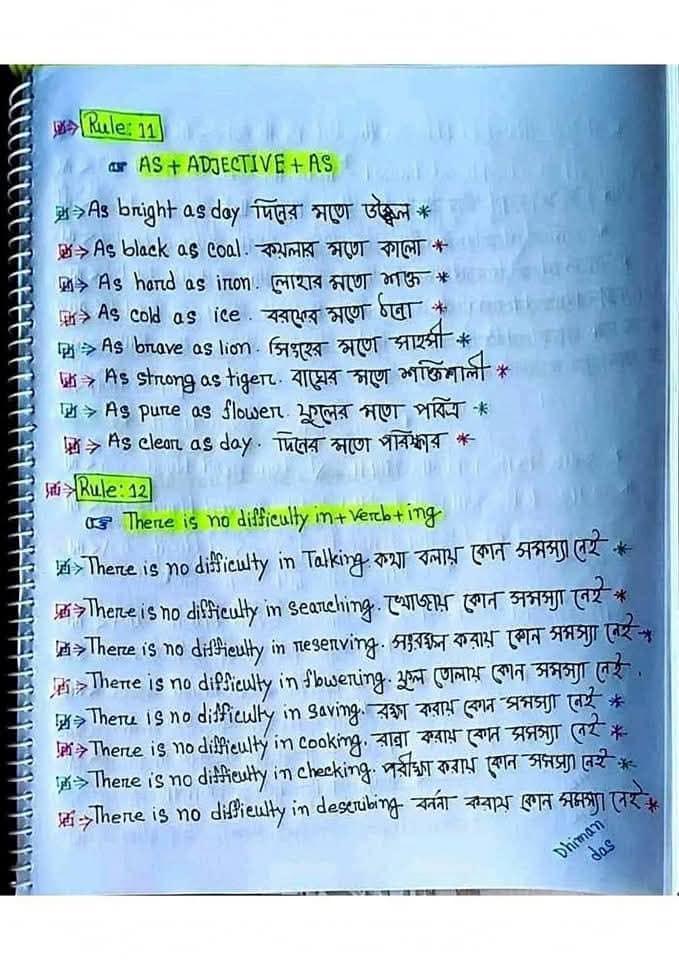 Rule: 11
AS + ADJECTIVE + AS
As bright as day দিনের মতো উজ্জ্বল *
As black as coal. কয়লার মতো কালো *
As hard as iron. লোহার মতো শক্ত *
As cold as ice. বরফের মতো ঠান্ডা *
As brave as lion. সিংহের মতো সাহসী *
As strong as tiger. বাঘের মতো শক্তিশালী *
As pure as flower. ফুলের মতো পবিত্র *
As clear as day. দিনের মতো পরিষ্কার *
Rule: 12
There is no difficulty in + Verb + ing
There is no difficulty in Talking. কথা বলায় কোন সমস্যা নেই *
There is no difficulty in searching. খোঁজায় কোন সমস্যা নেই *
There is no difficulty in reserving. সংরক্ষন করায় কোন সমস্যা নেই *
There is no difficulty in flowering. ফুল তোলায় কোন সমস্যা নেই.
There is no difficulty in saving. রক্ষা করায় কোন সমস্যা নেই *
There is no difficulty in cooking. রান্না করায় কোন সমস্যা নেই *
There is no difficulty in checking. পরীক্ষা করায় কোন সমস্যা নেই *
There is no difficulty in describing বর্ননা করায় কোন সমস্যা নেই *
Dhiman
das